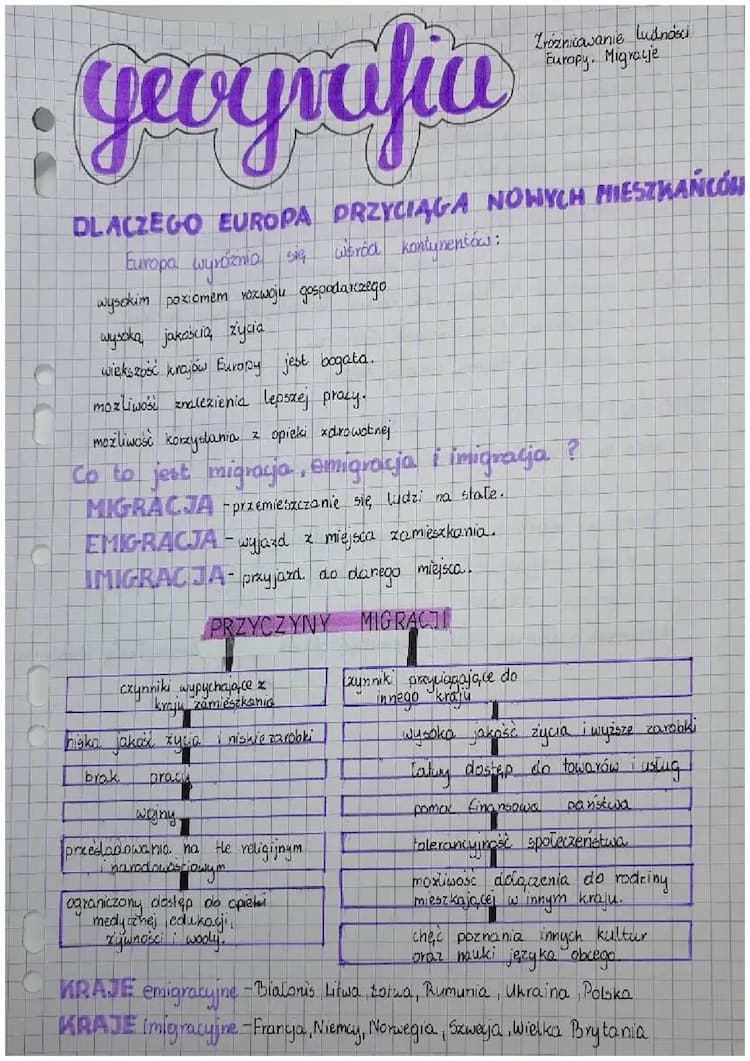 geografia
Zróżnicowanie ludności
Europy. Migracje
DLACZEGO EUROPA PRZYCIĄGA NOWYCH MIESZKAŃCÓW
Europa wyróżnia się wśród kontynentów:
wysokim poziomem rozwoju gospodarczego
wysoką jakością życia
większość krajów Europy jest bogata.
możliwość znalezienia lepszej pracy.
możliwość korzystania z opieki zdrowotnej
Co to jest migracja, emigracja i imigracja ?
MIGRACJA - przemieszczanie się ludzi na stałe.
EMIGRACJA - wyjazd z miejsca zamieszkania.
IMIGRACJA - przyjazd do danego miejsca.
PRZYCZYNY MIGRACJI
czynniki wypychające z
kraju zamieszkania
niska jakość życia i niskie zarobki
brak pracy
wojny
prześladowania na tle religijnym
i narodowościowym
ograniczony dostęp do opieki
medycznej, edukacji,
żywności i wody.
czynniki przyciągające do
innego kraju
wysoka jakość życia i wyższe zarobki
łatwy dostęp do towarów i usług
pomoc finansowa państwa
tolerancyjność społeczeństwa
możliwość dołączenia do rodziny
mieszkającej w innym kraju.
chęć poznania innych kultur
oraz nauki języka obcego.
KRAJE emigracyjne - Białoruś, Litwa, Łotwa, Rumunia, Ukraina, Polska
KRAJE imigracyjne - Francja, Niemcy, Norwegia, Szwecja, Wielka Brytania